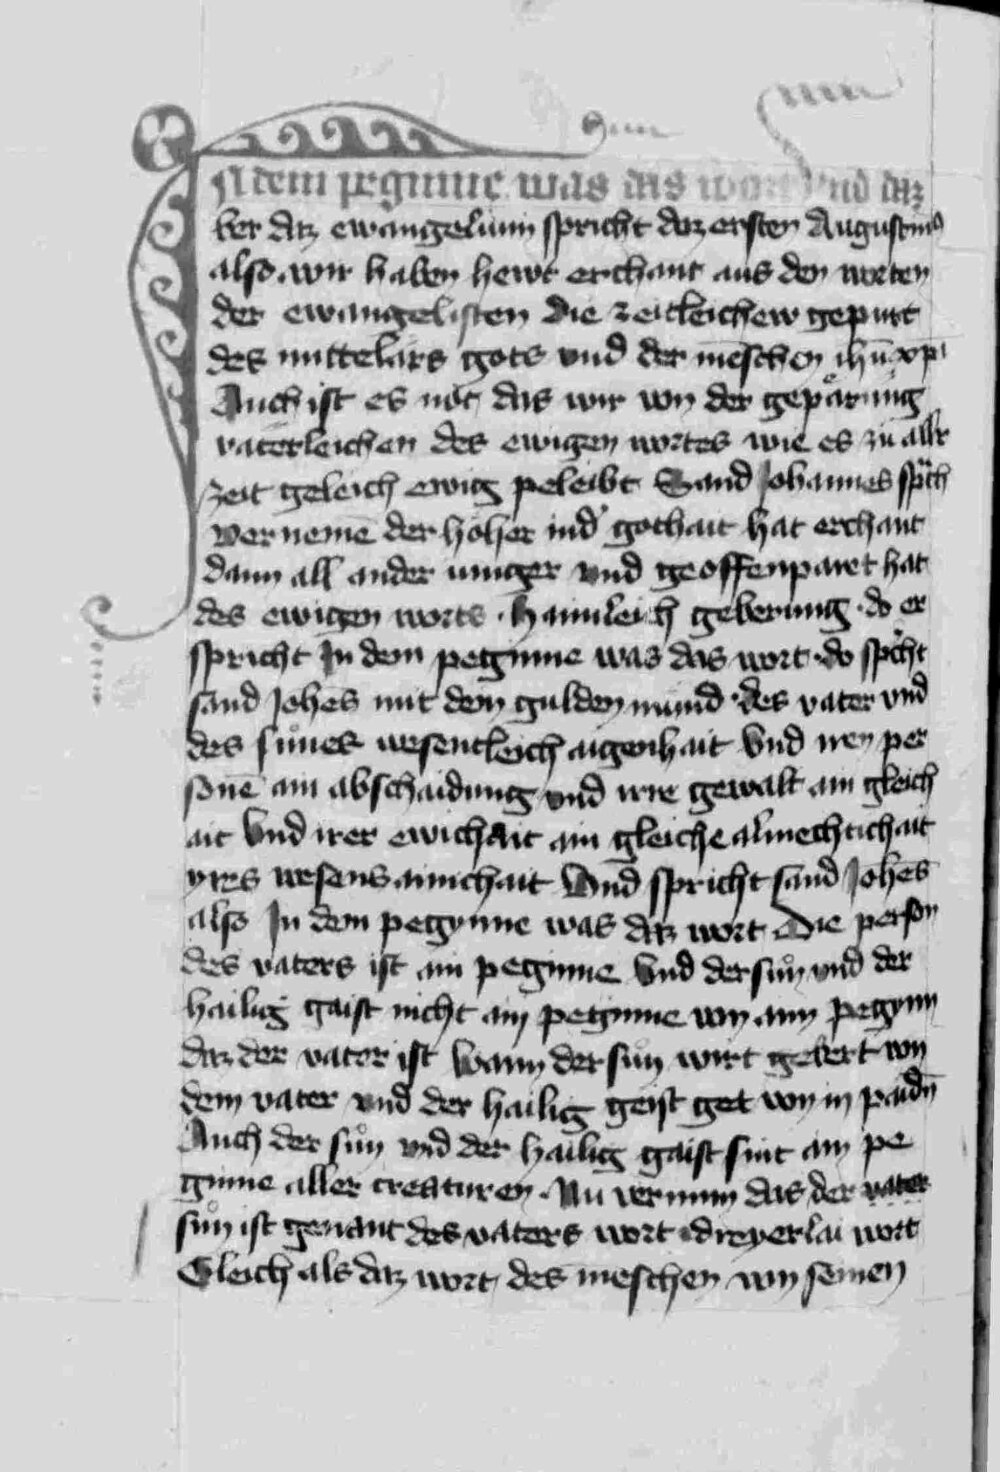 N dem peginne was das wort und daz
ber daz ewangelium spricht daz ersten Augustinus
also wir haben hewt erchant aus den worten
der ewangelisten die zeitleichew gepurt
des mittelärs gots vnd der menschen ihū xpi
Auch ist es not das wir von der gepärung
vaterleichen des ewigen wortes wie es zu aller
zeit geleich ewig peleibt Sand Johannes sprich
der hoher gothait hat erchant
dann all ander ewiger vnd geoffenparet hat
des ewigen worts haimleich geberung do er
spricht In dem peginne was das wort do spricht
sand Johēs mit dem gulden mund des vater vnd
des sůnes wesentleich aigenhait Vnd iren per
sonē ain abschaidung vnd irre gewalt ain gleich
ait Vnd irer ewichait ain gleiche almechtichait
yres wesens ainichait Vnd spricht sand Johēs
also In dem pegynne was daz wort Die person
des vaters ist ain peginne Vnd der sůn vnd der
hailig gaist nicht ain peginne von ainn pegynn
daz der vater ist Wann der sůn wirt gebert von
dem vater vnd der hailig geist get von in paidn̄
Auch der sůn vnd der hailig gaist sint ain pe
ginne aller creaturen Nu vernimm das der vater
sůn ist genant des vaters wort dreyerlai wort
Gleich als daz wort des menschen von seinen